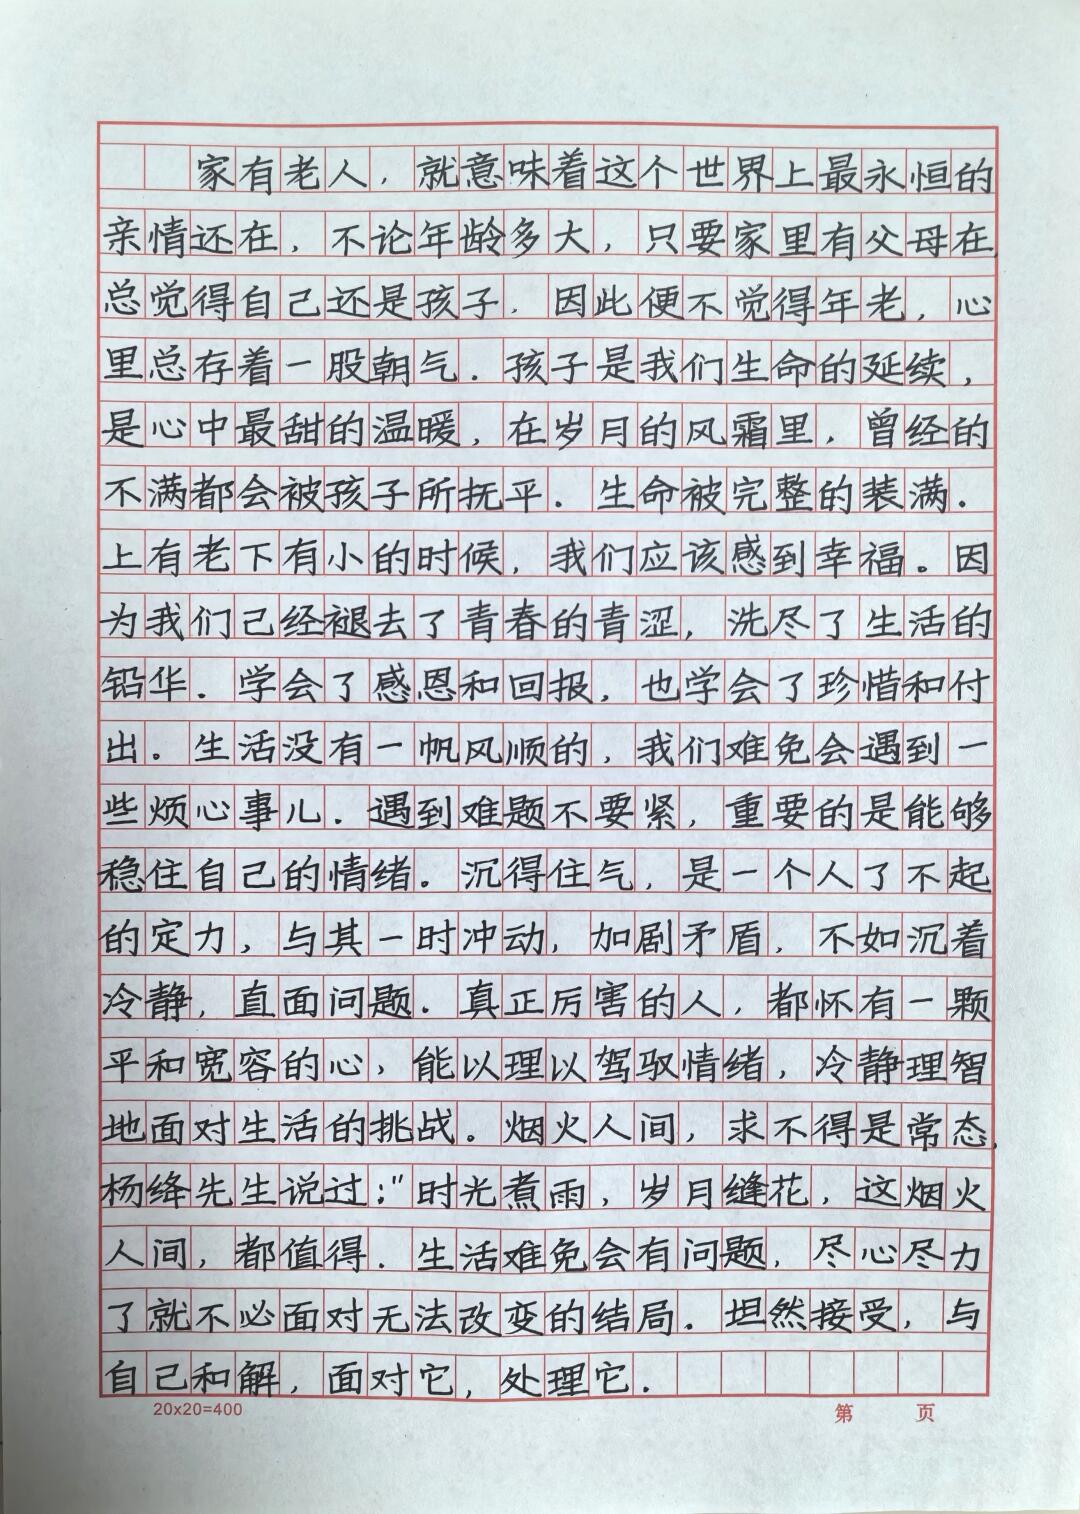 家有老人，就意味着这个世界上最永恒的
亲情还在，不论年龄多大，只要家里有父母在，
总觉得自己还是孩子，因此便不觉得年老，心
里总存着一股朝气．孩子是我们生命的延续，
是心中最甜的温暖，在岁月的风霜里，曾经的
不满都会被孩子所抚平．生命被完整的装满．
上有老下有小的时候，我们应该感到幸福。因
为我们己经褪去了青春的青涩，洗尽了生活的
铅华．学会了感恩和回报，也学会了珍惜和付
出。生活没有一帆风顺的，我们难免会遇到一
些烦心事儿．遇到难题不要紧，重要的是能够
稳住自己的情绪。沉得住气，是一个人了不起
的定力，与其一时冲动，加剧矛盾，不如沉着
冷静，直面问题．真正厉害的人，都怀有一颗
平和宽容的心，能以理以驾驭情绪，冷静理智
地面对生活的挑战。烟火人间，求不得是常态，
杨绛先生说过："时光煮雨，岁月缝花，这烟火
人间，都值得．生活难免会有问题，尽心尽力
了就不必面对无法改变的结局．坦然接受，与
自己和解，面对它，处理它．
20x20=400 第 页